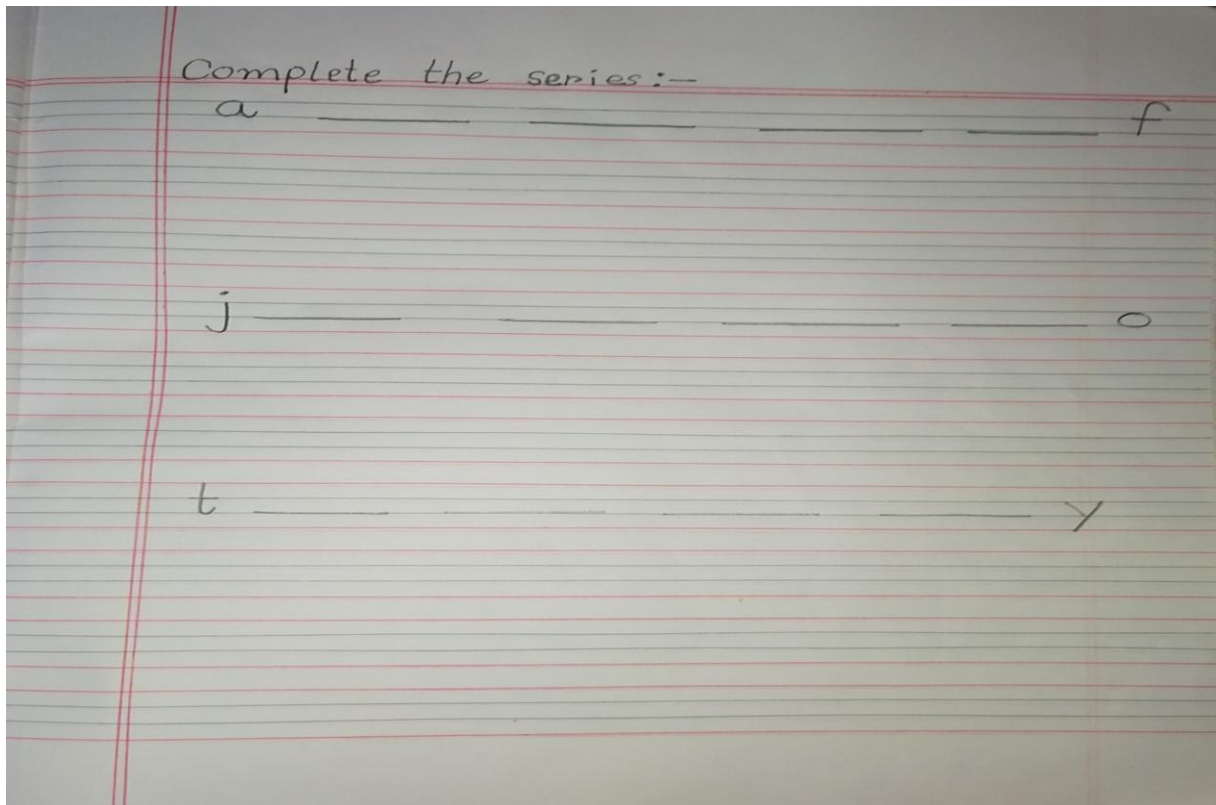 Complete the series:-
a ____ ____ ____ ____ f
j ____ ____ ____ ____ o
t ____ ____ ____ ____ y